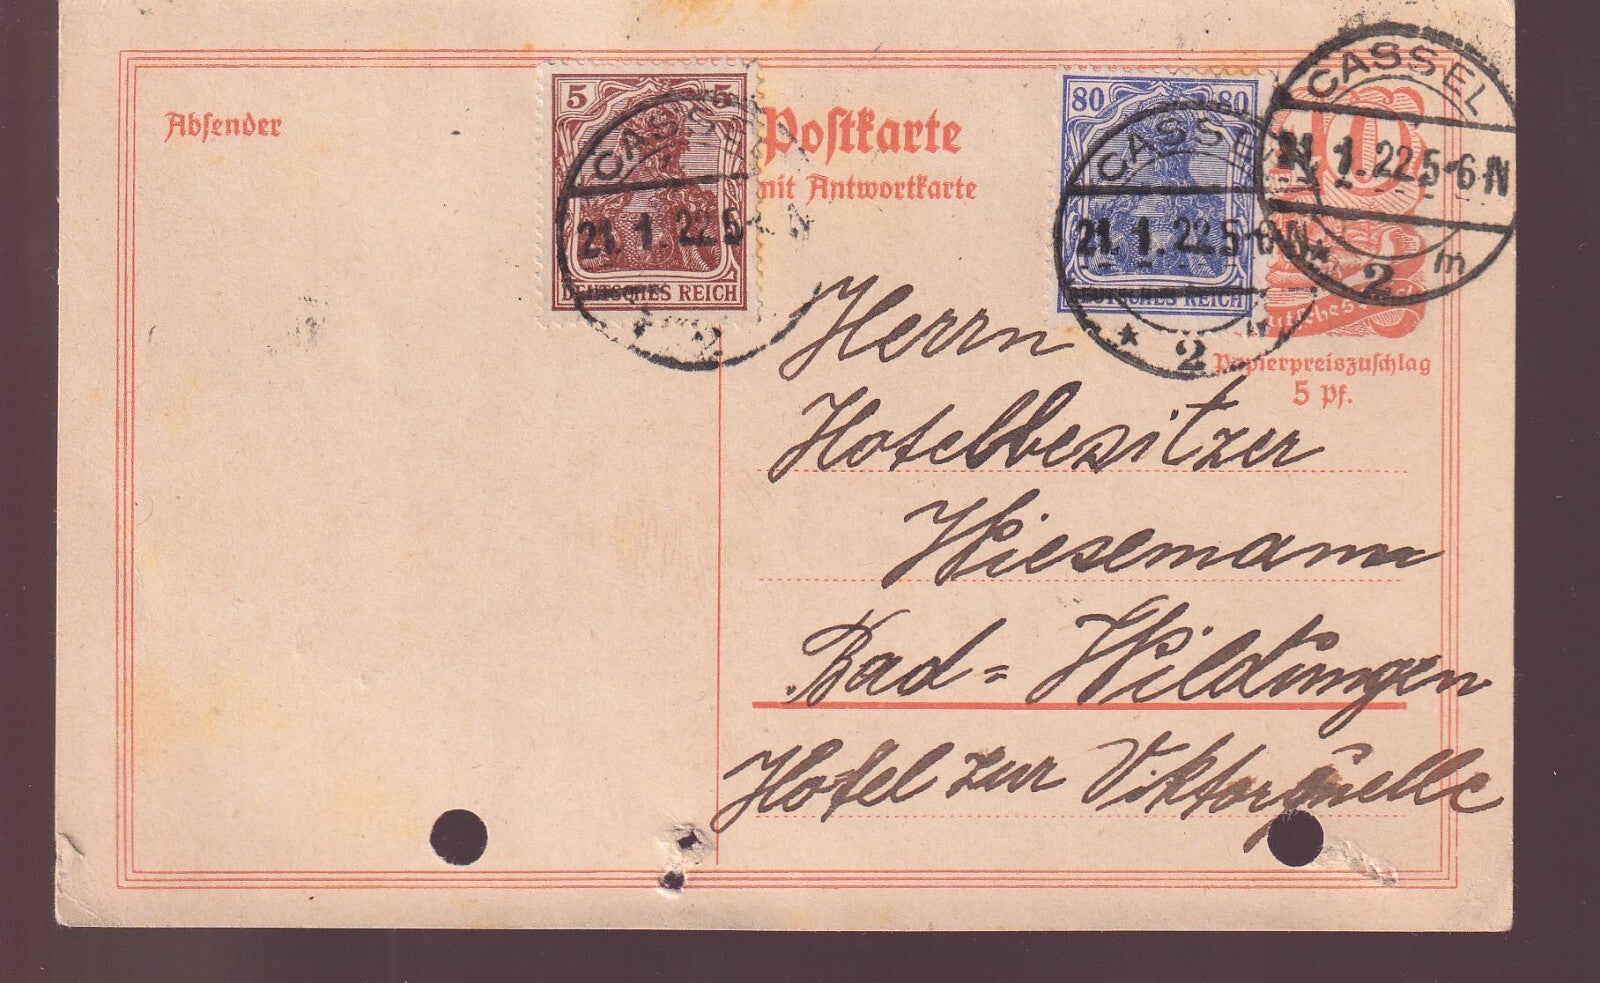 Absender
5 5
DEUTSCHES REICH
CASSEL
21. 1. 22 5-6 N
2
Postkarte
mit Antwortkarte
80 80
DEUTSCHES REICH
CASSEL
21. 1. 22 5-6 N
* 2
CASSEL
21. 1. 22 5-6 N
* 2 m
10
Papierpreiszuschlag
5 Pf.
Herrn
Hotelbesitzer
Wiesemann
Bad=Wildungen
Hotel zur Viktorquelle